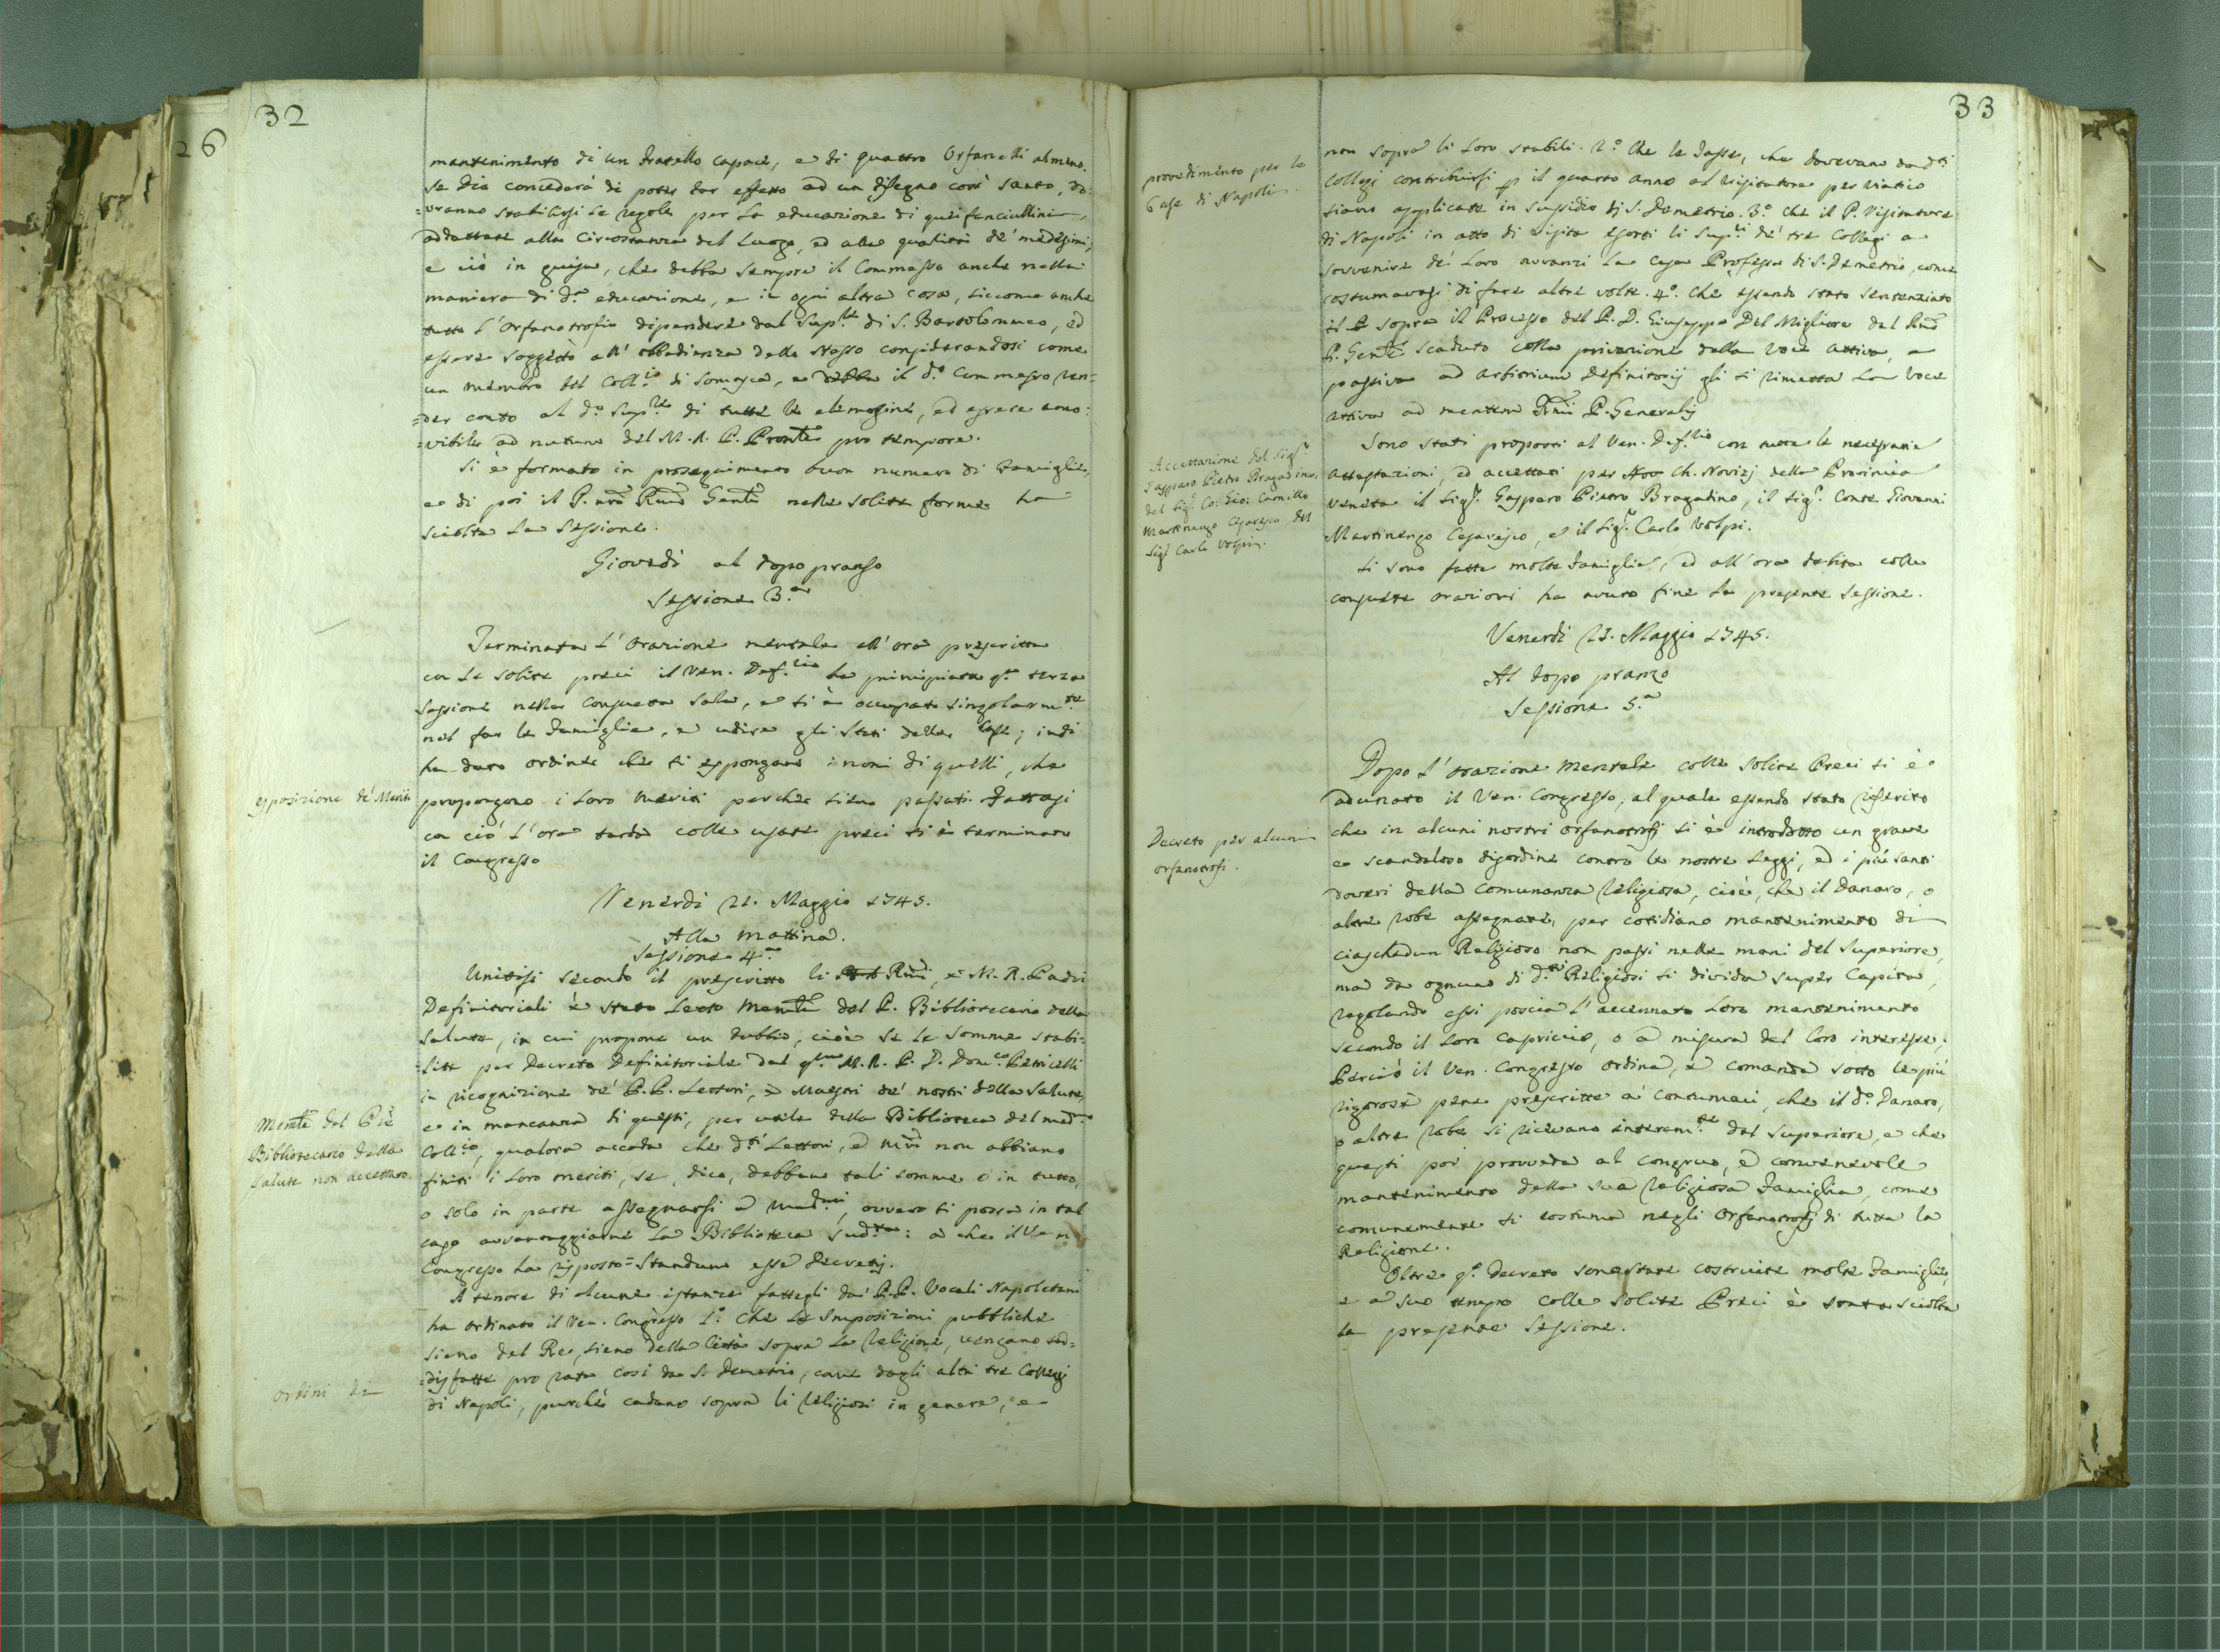 32
26
mantenimento di un fratello capace, e di quattro Orfanelli almeno.
Se Dio concederà di poter dar effetto ad un disegno così santo, do-
=vranno stabilirsi le regole per la educazione di quei fanciullini,
addattate alla circostanza del Luogo, ed alle qualità de' medesimi;
e ciò in guisa, che debba sempre il Commesso anche nella
maniera di d.ª educazione, e in ogni altra cosa, siccome anche
tutto l'Orfanotrofio dipendere dal Sup.re di S. Bartolommeo, ed
essere soggetto all' obbedienza dello stesso considerandosi come
un membro del Coll.io di Somasca, e debba il d.º Commesso ren=
=der conto al d.º Sup.re di tutte le elemosine, ed essere amo=
=vibile ad nutum del M. R. P. Pronte pro tempore.
Si è formato in proseguimento buon numero di Famiglie,
e di poi il P. nro Rmo Genle nelle solite forme ha
sciolta la Sessione.
Giovedì al dopo pranso
Sessione 3.ª
Terminata l'Orazione mentale all'ora prescritta
con le solite preci il Ven. Def.rio ha principiata q.ta terza
Sessione nella consueta sala, e si è occupato singolarm.te
nel far le Famiglie, e udire gli Stati delle Case; indi
ha dato ordine che si espongano i nomi di quelli, che
esposizione de' Meriti
propongono i loro meriti perchè sieno passati. Fattasi
con ciò l'ora tarda colle usate preci si è terminato
il Congresso
Venerdì 21. Maggio 1745.
Alla mattina.
Sessione 4.ª
Unitisi secondo il prescritto li Rmi, e M. R. Padri
Definitoriali è stato letto Memle del P. Bibliotecario della
Salute, in cui propone un dubbio, cioè se le somme stabi=
=lite per Decreto Definitoriale dal q.m M. R. P. D. Dom.co Petricelli
in ricognizione de' P.P. Lettori, e Maestri de' nostri della Salute,
e in mancanza di questi, per utile della Biblioteca del med.mo
Memle del P.
Bibliotecario della
Salute non accettato.
Coll.io, qualora accada che d.ti Lettori, ed Mri non abbiano
finiti i loro meriti, se, dico, debban tali somme o in tutto,
o solo in parte assegnarsi a' med.mi, ovvero si possa in tal
caso avvantaggiarne la Biblioteca sud.ta: a che il Ven.
Congresso ha risposto = Standum esse Decretis.
A tenore di alcune istanze fattegli da' P.P. Vocali Napoletani
ha ordinato il Ven. Congresso 1.º Che le Imposizioni pubbliche
sieno del Re, sieno della Città sopra la Religione, vengano sod=
=disfatte pro rata così da S. Demetrio, come dagli altri tre Collegj
ordini di
di Napoli, purchè cadano sopra li Religiosi in genere, e
33
provedimento per le
Case di Napoli.
non sopra li loro stabili. 2.º Che le Tasse, che dovevano da d.ti
Collegj contribuirsi p il quarto anno al Visitatore per viatico
siano applicate in sussidio di S. Demetrio. 3.º Che il P. Visitatore
di Napoli in atto di visita esorti li Sup.ri de' tre Collegi a
sovvenire de' loro avvanzi la Casa Professa di S. Demetrio, come
costumavasi di fare altre volte. 4.º Che essendo stato sentenziato
sopra il Processo del P. D. Giuseppe Del Migliore dal Rmo
P. Genle scaduto colla privazione della voce attiva, e
passiva ad arbitrium Definitorij gli si rimetta la voce
attiva ad mentem Rmi P. Generalis
Accettazione del Sig.r
Gasparo Pietro Bragadino,
del Sig. Co: Gio: Camillo
Martinengo Cesaresco, del
Sig.r Carlo Volpi.
Sono stati proposti al Ven. Def.rio con tutte le necessarie
attestazioni, ed accettati per Ch. Novizj della Provincia
Veneta il Sig.r Gasparo Pietro Bragadino, il Sig.r Conte Giovanni
Martinengo Cesaresco, e il Sig.r Carlo Volpi.
Si sono fatte molte Famiglie, ed all'ora debita colle
consuete orazioni ha avuto fine la presente Sessione.
Venerdì 21. Maggio 1745.
Al dopo pranzo
Sessione 5.ª
Dopo l'orazione mentale colle solite Preci si è
adunato il Ven. Congresso, al quale essendo stato riferito
Decreto per alcuni
orfanotrofj.
che in alcuni nostri orfanotrofj si è introdotto un grave
e scandaloso disordine contro le nostre Leggi, ed i più santi
doveri della comunanza religiosa, cioè, che il danaro, o
altre robe assegnate, per cotidiano mantenimento di
ciaschedun Religioso non passi nelle mani del Superiore,
ma da ognuno di d.ti Religiosi si divida super Capita,
regolando essi poscia l'accennato loro mantenimento
secondo il loro capriccio, o a misura del loro interesse;
Perciò il Ven. Congresso ordina, e comanda sotto le più
rigorose pene prescritte a' contumaci, che il d.º Danaro,
o altre robe si ricevano interam.te dal Superiore, e che
questi poi provveda al congruo, e convenevole
mantenimento della sua religiosa Famiglia, come
comunemente si costuma negli Orfanotrofj di tutta la
Religione.
Oltre q.º Decreto sono state costruite molte Famiglie,
e a suo tempo colle solite Preci è stata sciolta
la presente Sessione.